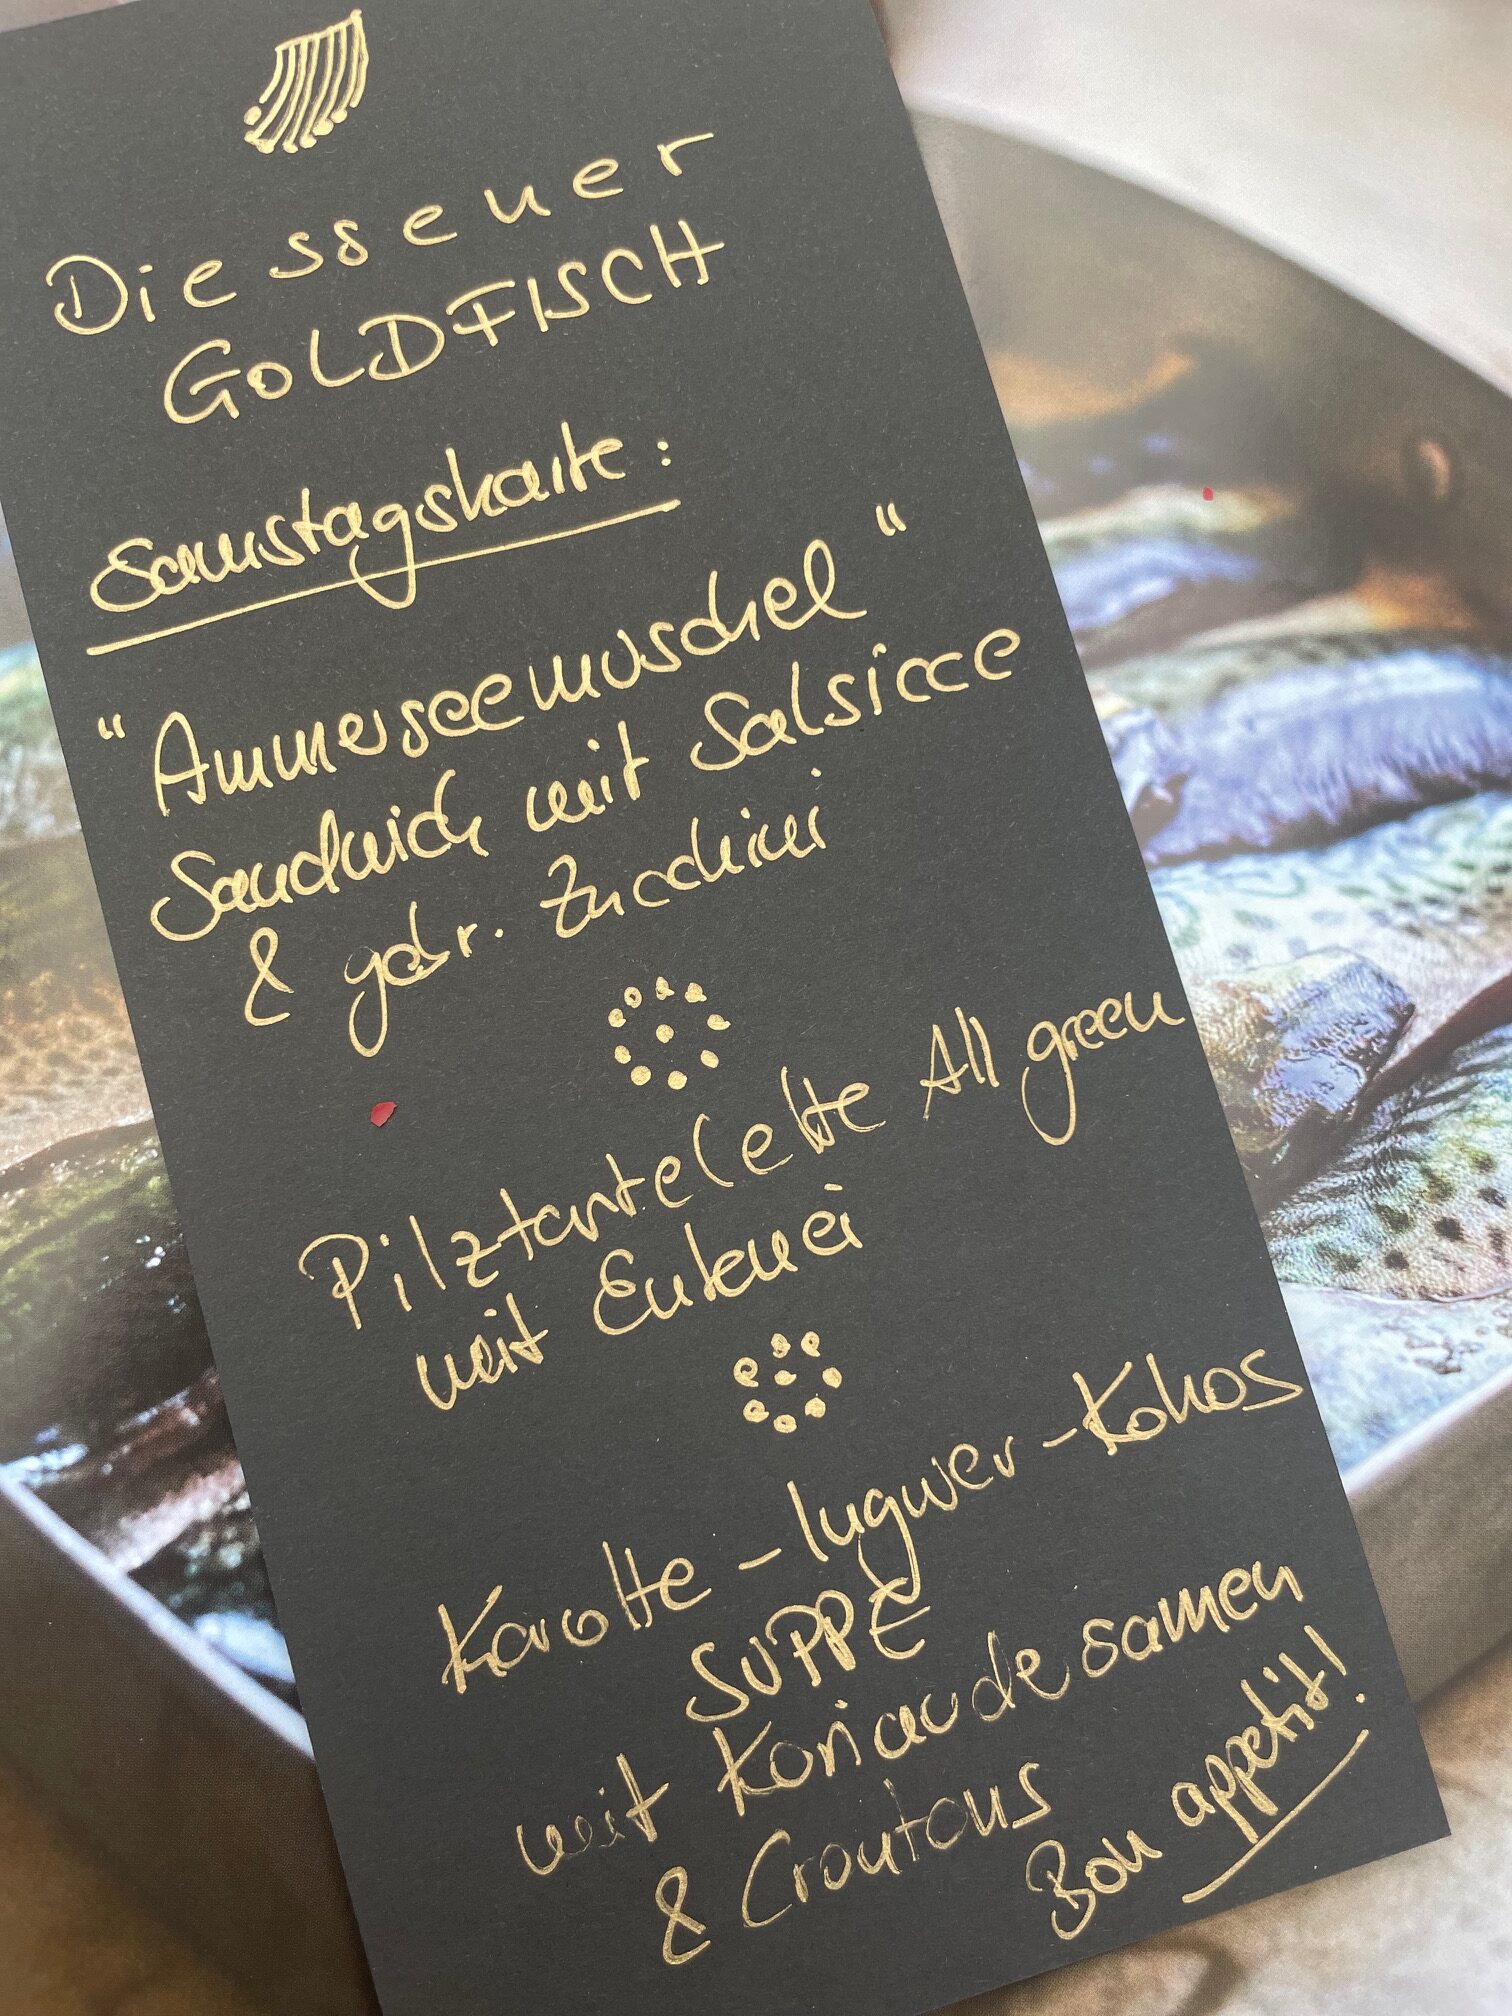 Diessener
GOLDFISCH
Samstagskarte:
"Ammerseemuschel"
Sandwich mit Salsicce
& gebr. Zucchini
Pilztartelette All green
mit Entenei
Karotte-Ingwer-Kokos
SUPPE
mit Koriandersamen
& Croutons
Bon appetit!